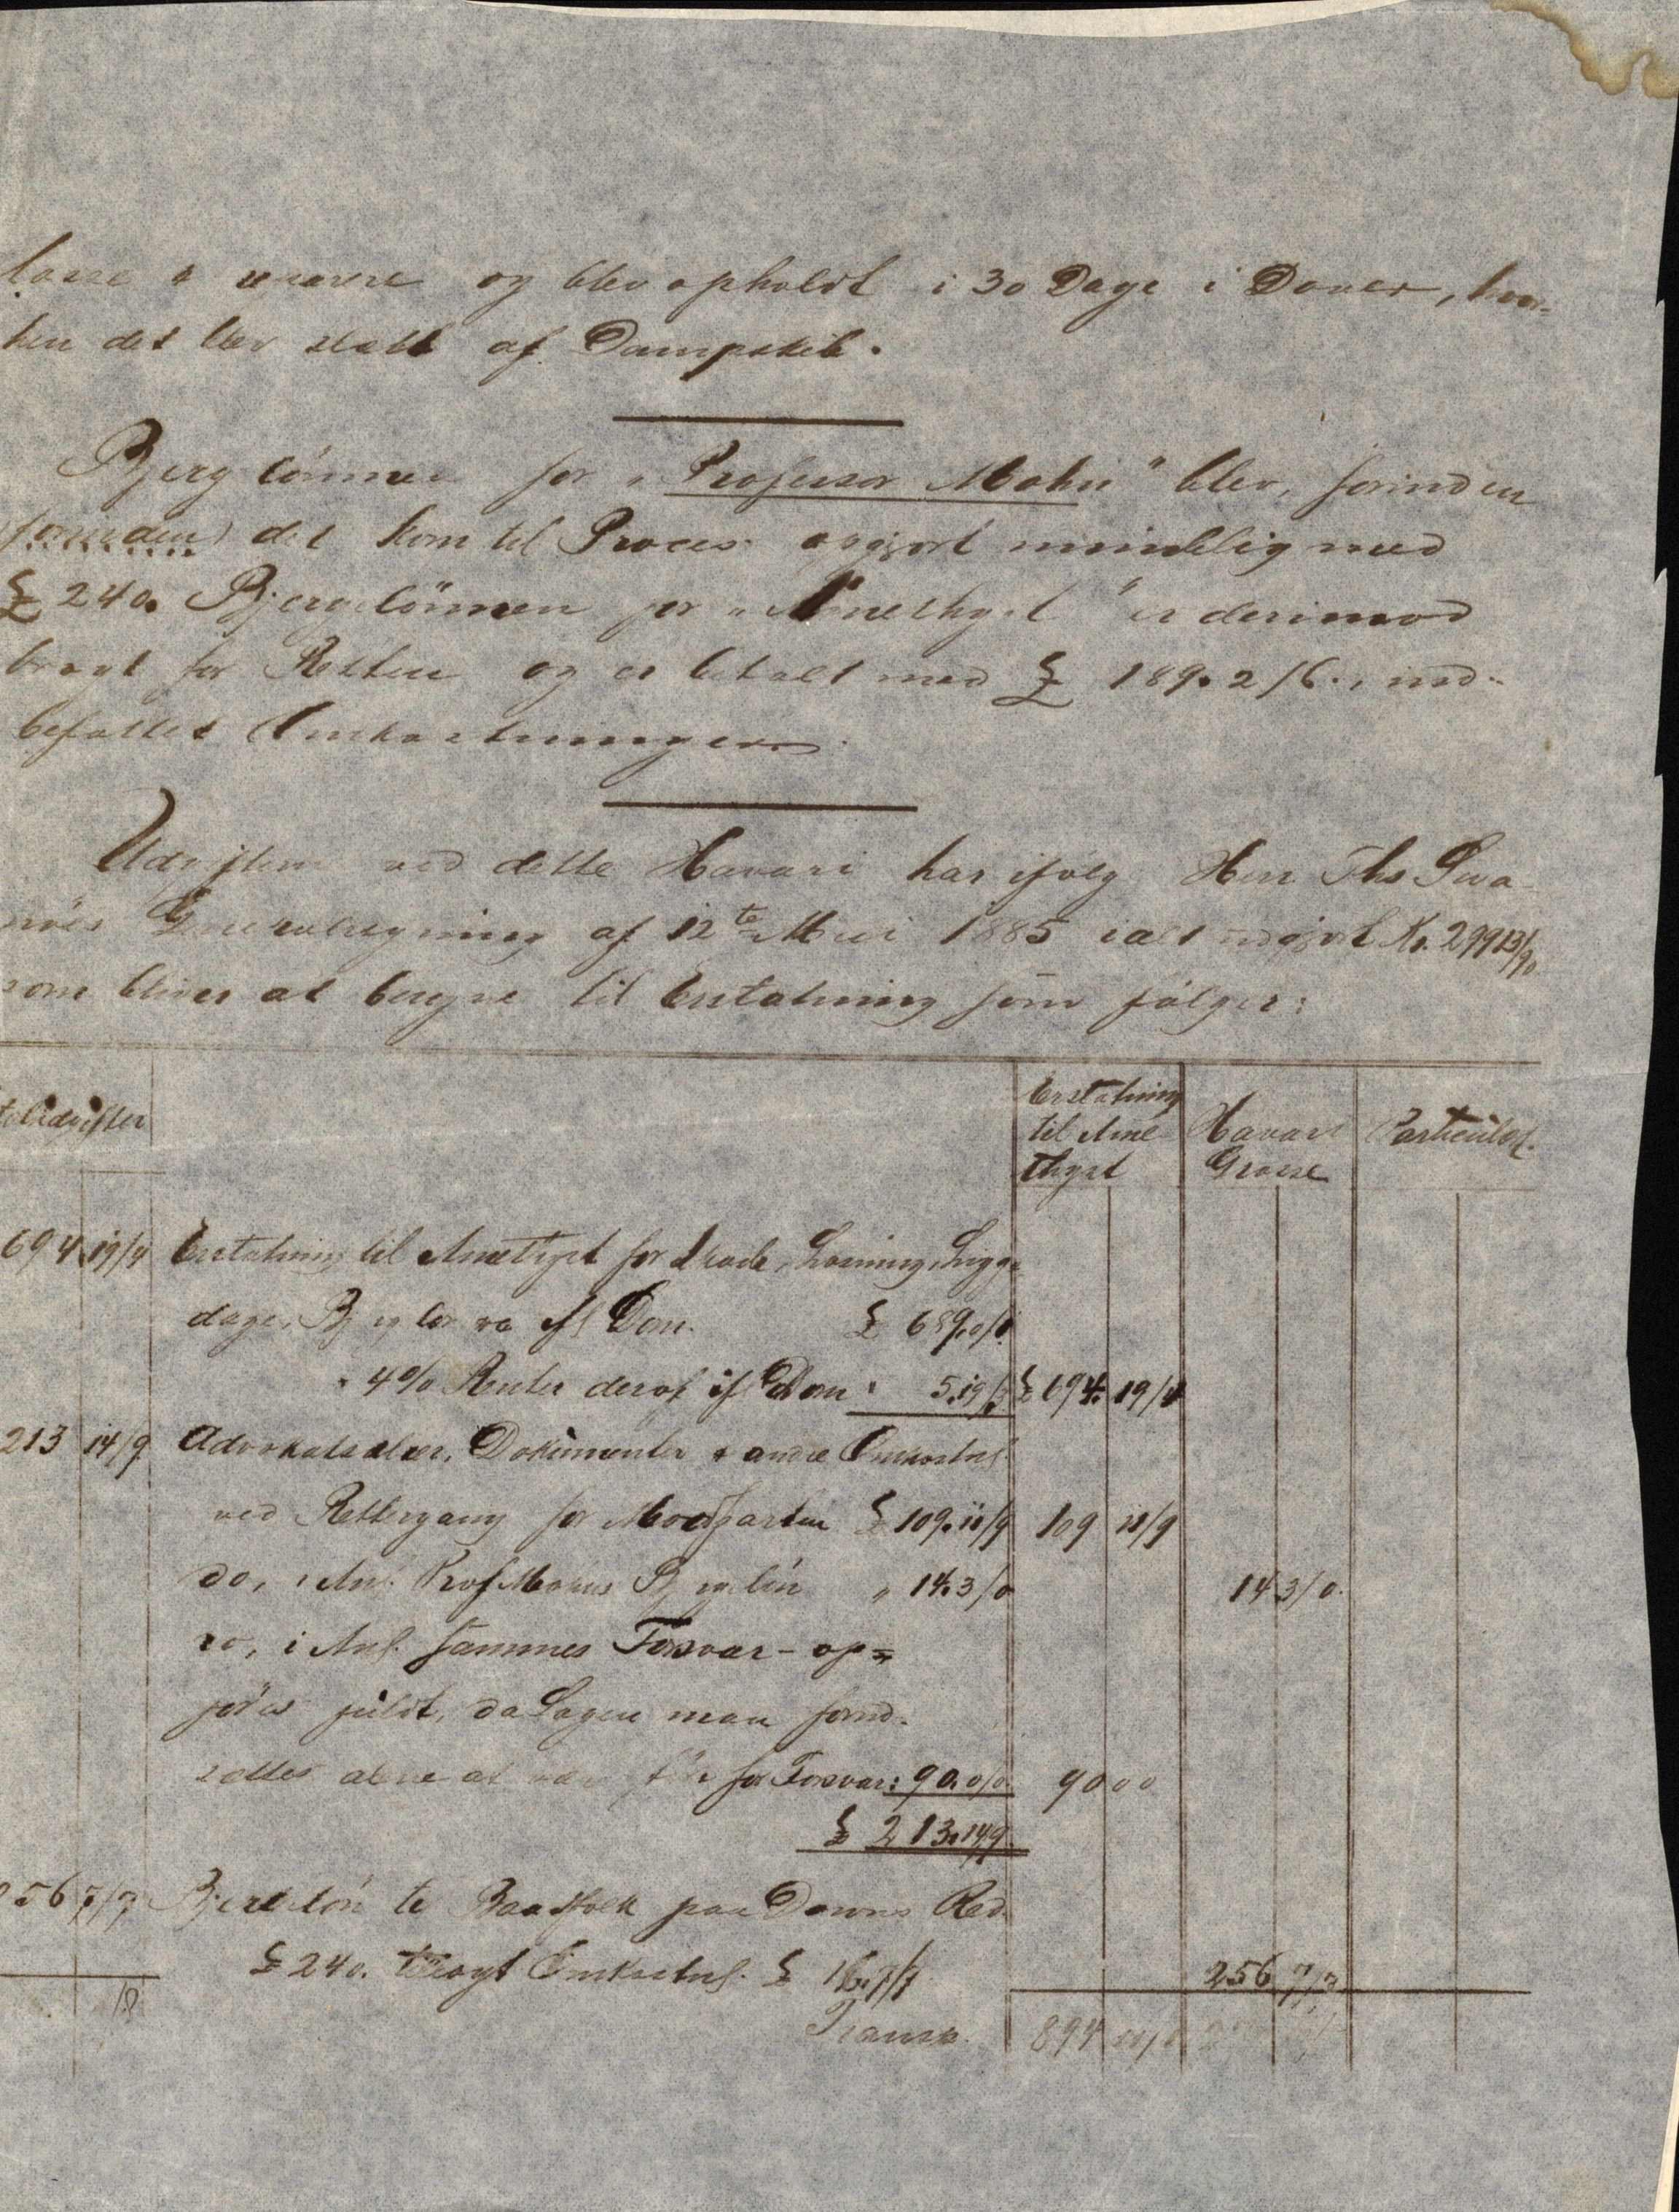 losse & reparere og blev opholdt i 30 Dage i Dover, hvor-
hen det blev slæbt af Dampskib.
Bjerglönnen for "Professor Mohn" blev, forinden
(forinden) det kom til Proces opgjort mindelig med
£ 240. Bjergelönnen for "Amethyst" er derimod
bragt for Retten og er betalt med £ 189.2/6., ind-
befattet Omkostninger.
Udgiften ved dette Havari har ifölg Herr Ths Swa-
nöes Generalregning af 12te Mai 1885 ialt udgjort Kr. 29913/90
som bliver at beregne til Erstatning som fölger:
Udgifter
Erstatning til Ame-thyst
Havari Grosse
Particulær.
694 19/4 Erstatning til Amethyst for Skade, Losning, Ligge-
dage, Bjerglön ifl Dom. £ 689.0/0
" 4% Renter deraf ifl Dom " 5.19/4 £ 694. 19/4
213 14/9 Advokatsalær, Dokumenter & andre Omkostnf.
ved Rettergang for Modparten £ 109.11/9 109 11/9
do, i Anl. Prof Mohns Bjergelön " 14.3/0 14 3/0.
do, i Anl. sammes Forsvar - op-
föres fuldt, da Sagen maa forud-
sættes alene at være for Forsvar: 90.0/0. 90 0 0
£ 213.14/9.
256 7/7 Bjergelön til Baadfolk paa Downs Red
£ 240. tillagt Omkostnf. £ 16.7/7 256 7/7
Transp. 894